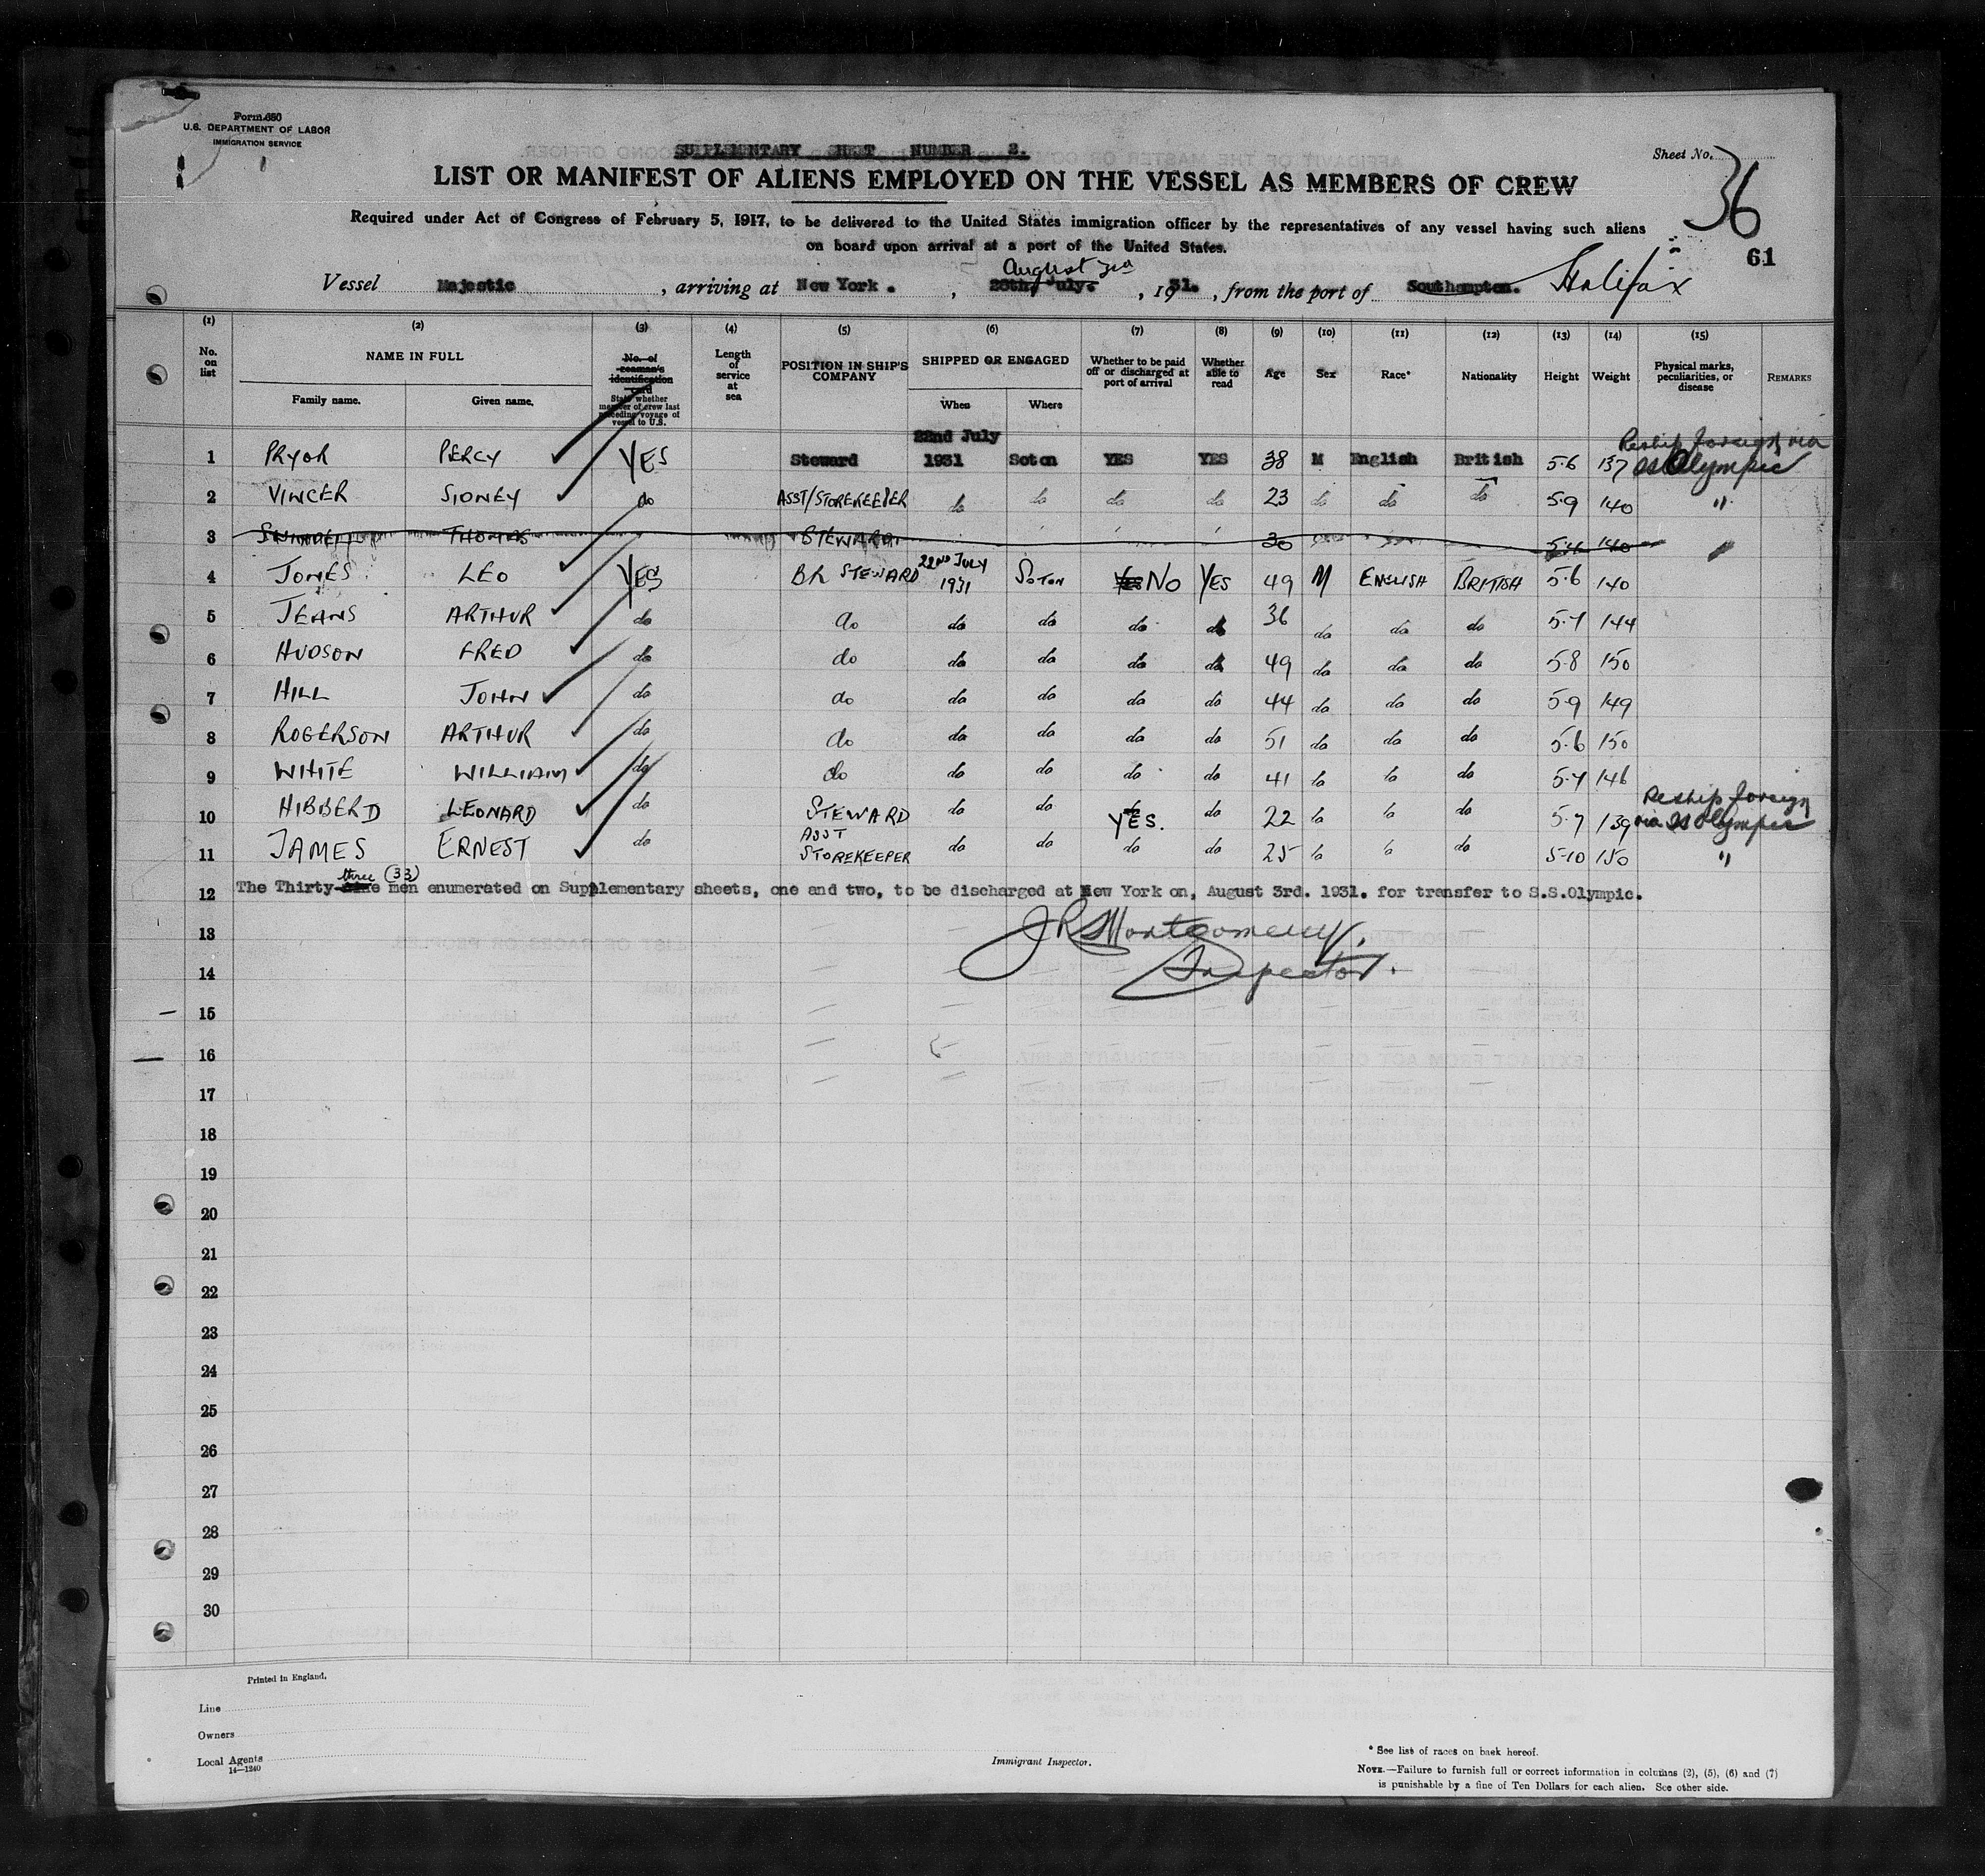 Form 680
U.S. DEPARTMENT OF LABOR
IMMIGRATION SERVICE
SUPPLEMENTARY SHEET NUMBER 2.
Sheet No. 36
LIST OR MANIFEST OF ALIENS EMPLOYED ON THE VESSEL AS MEMBERS OF CREW
Required under Act of Congress of February 5, 1917, to be delivered to the United States immigration officer by the representatives of any vessel having such aliens
on board upon arrival at a port of the United States.
61
August 3rd
Vessel Majestic, arriving at New York., 28th July., 1931., from the port of Southampton. Halifax
(1) (2) (3) (4) (5) (6) (7) (8) (9) (10) (11) (12) (13) (14) (15)
No. on list NAME IN FULL Family name. Given name. No. of seaman's identification card State whether member of crew last preceding voyage of vessel to U.S. Length of service at sea POSITION IN SHIP'S COMPANY SHIPPED OR ENGAGED When Where Whether to be paid off or discharged at port of arrival Whether able to read Age Sex Race* Nationality Height Weight Physical marks, peculiarities, or disease REMARKS
1 PRYOR PERCY YES Steward 22nd July 1931 Soton YES YES 38 M English British 5·6 137 Reship foreign via SS Olympic
2 VINCER SIDNEY do ASST/STOREKEEPER do do do do 23 do do do 5·9 140 "
3 THOMAS STEWARD 30 140
4 JONES LEO YES BR STEWARD 22ND JULY 1931 SOTON YES NO YES 49 M ENGLISH BRITISH 5·6 140
5 JEANS ARTHUR do do do do do do 36 do do do 5·7 144
6 HUDSON FRED do do do do do do 49 do do do 5·8 150
7 HILL JOHN do do do do do do 44 do do do 5·9 149
8 ROGERSON ARTHUR do do do do do do 51 do do do 5·6 150
9 WHITE WILLIAM do do do do do do 41 do do do 5·7 146
10 HIBBERD LEONARD do STEWARD do do YES. do 22 do do do 5·7 139 Reship foreign via SS Olympic
11 JAMES ERNEST do ASST STOREKEEPER do do do do 25 do do do 5·10 150 "
three (33)
12 The Thirty men enumerated on Supplementary sheets, one and two, to be discharged at New York on, August 3rd. 1931. for transfer to S.S.Olympic.
13 J R Montgomery.
14 Inspector.
15
16
17
18
19
20
21
22
23
24
25
26
27
28
29
30
Printed in England.
Line
Owners
Local Agents
14—1240
Immigrant Inspector.
* See list of races on back hereof.
NOTE.—Failure to furnish full or correct information in columns (2), (5), (6) and (7)
is punishable by a fine of Ten Dollars for each alien. See other side.